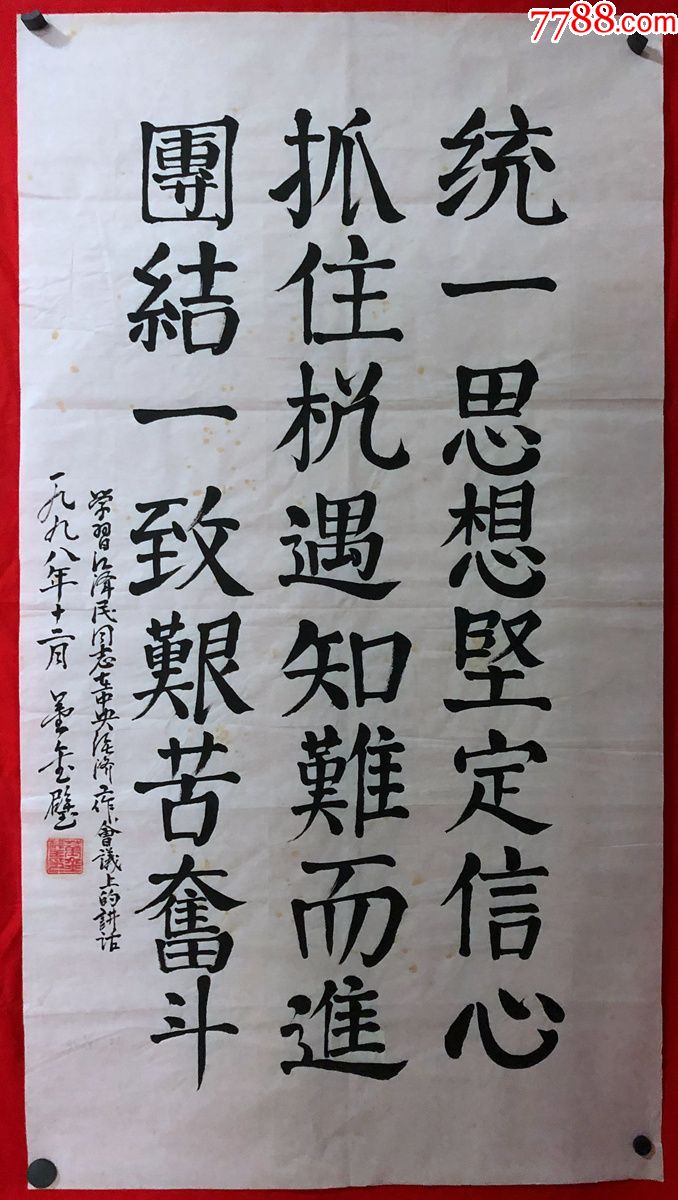 7788.com
统一思想堅定信心
抓住机遇知難而進
團結一致艱苦奮斗
学習江泽民同志在中央经济工作會議上的讲话
一九九八年十二月 金璧